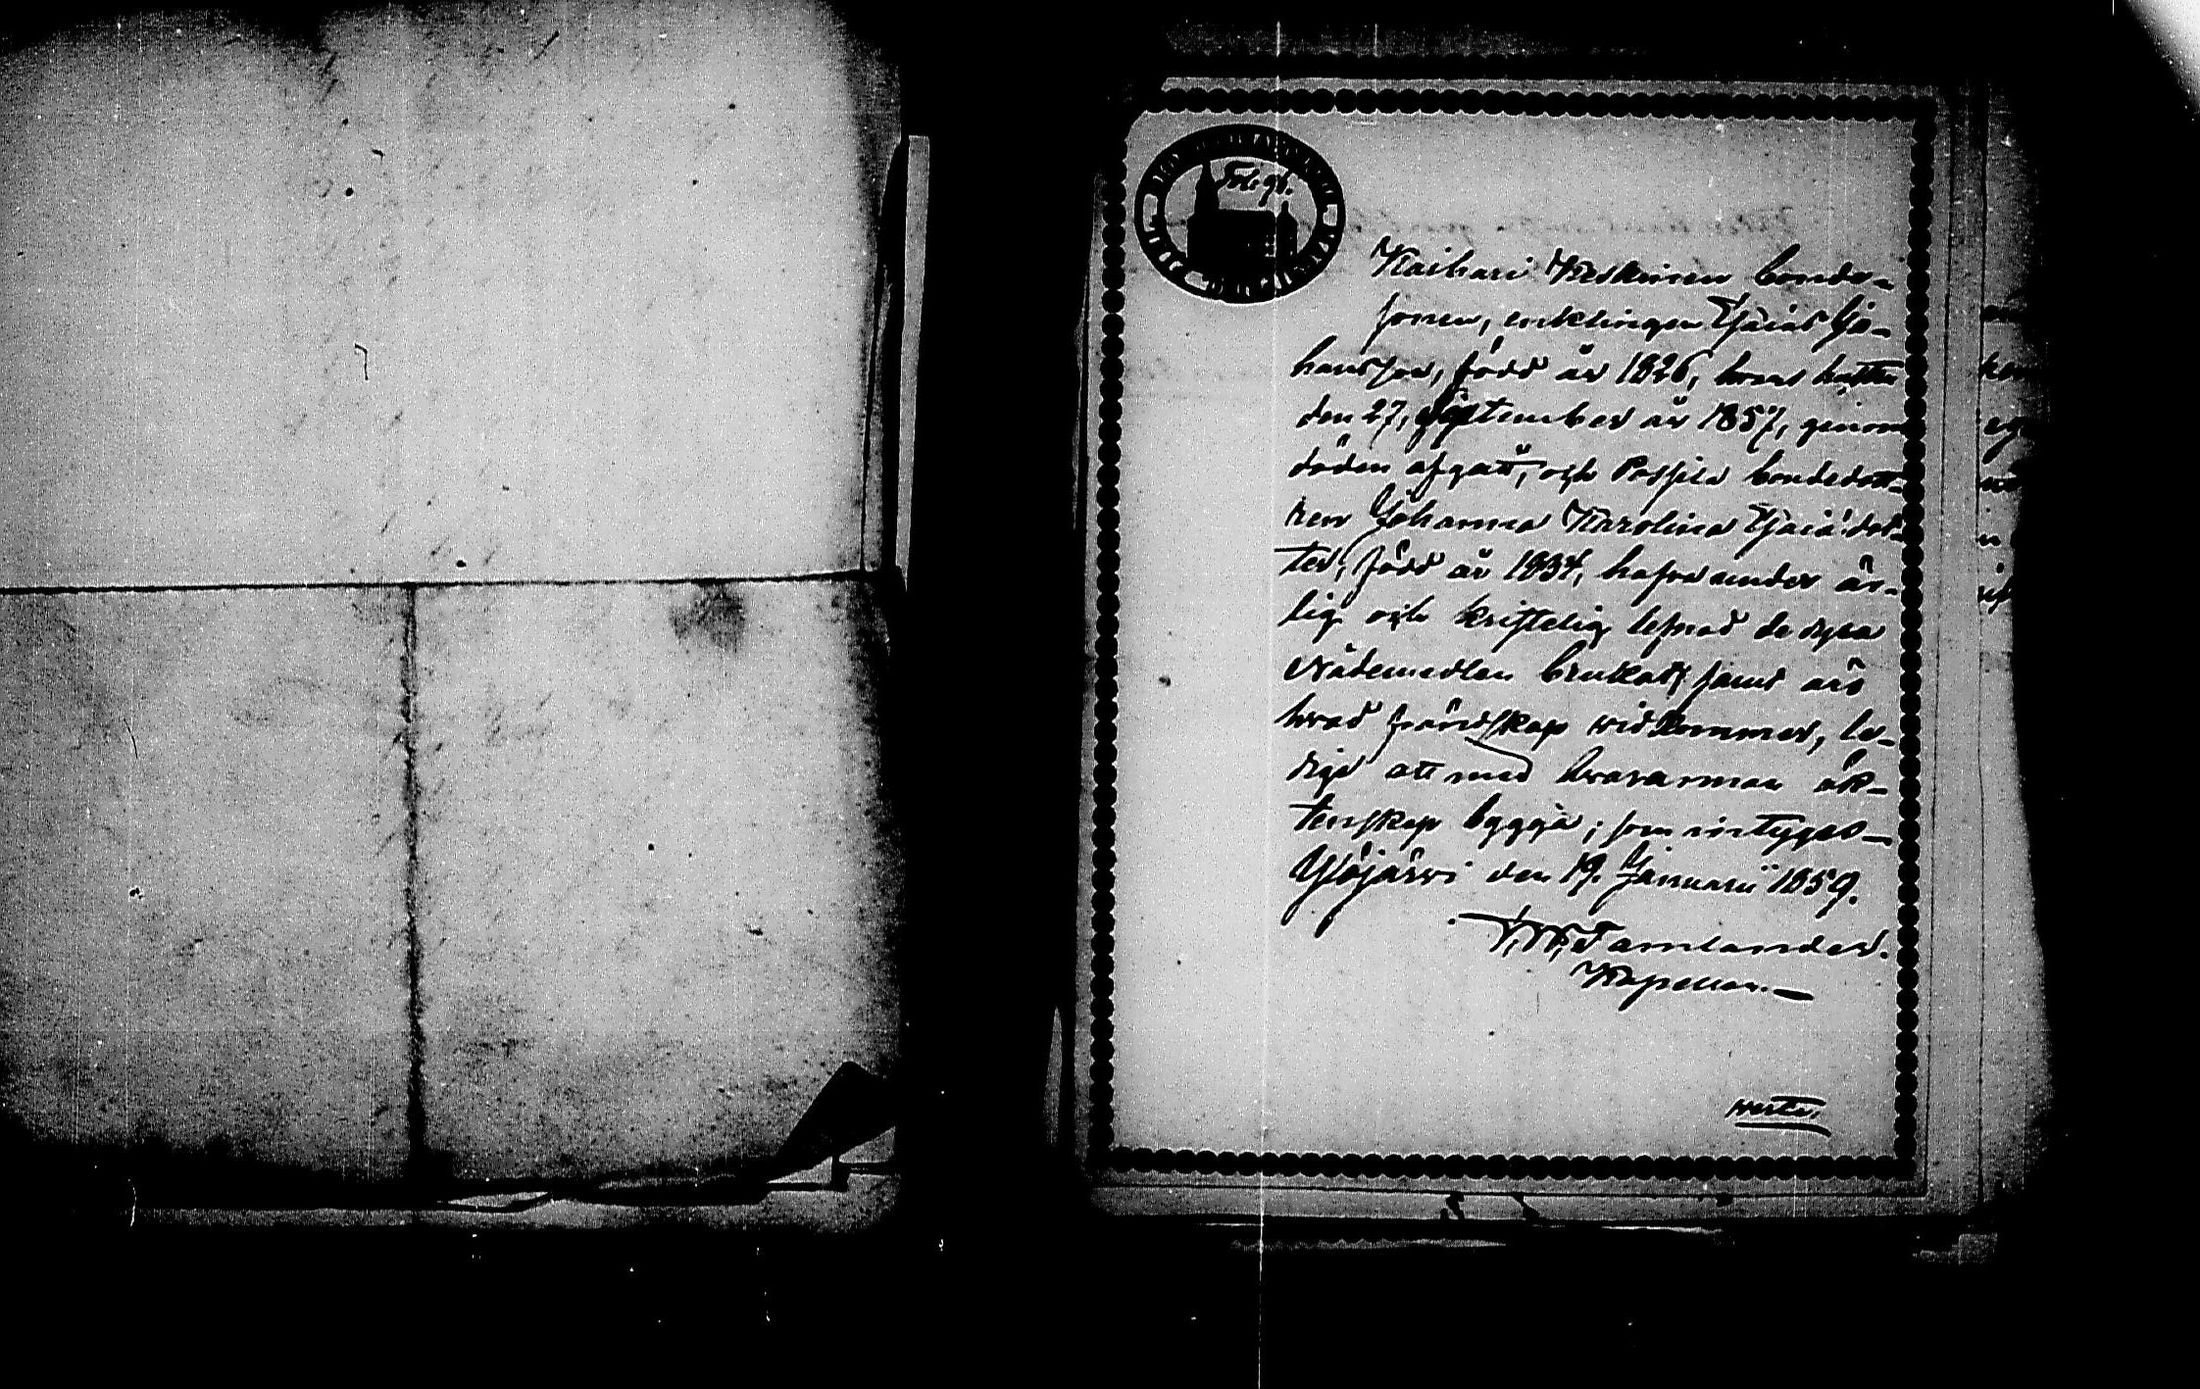 Fol. 91.
Kaihari Keskinen bonde-
sonen, enklingen Esaias Jo-
hansson, född år 1826, hvars hustru
den 27, September år 1857, genom
döden afgått, och Passila bondedott-
ren Johanna Karolina Esaiædot-
ter, född år 1834, hafva under är-
lig och kristelig lefnad de dyra
Nådemedlen brukat, samt äro
hvad frändskap widkommer, le-
diga att med hvarannan äk-
tenskap bygga; som intygas_
Ylöjärwi den 19. Januarii 1859.
Tamlander.
Kapellan._
verte.